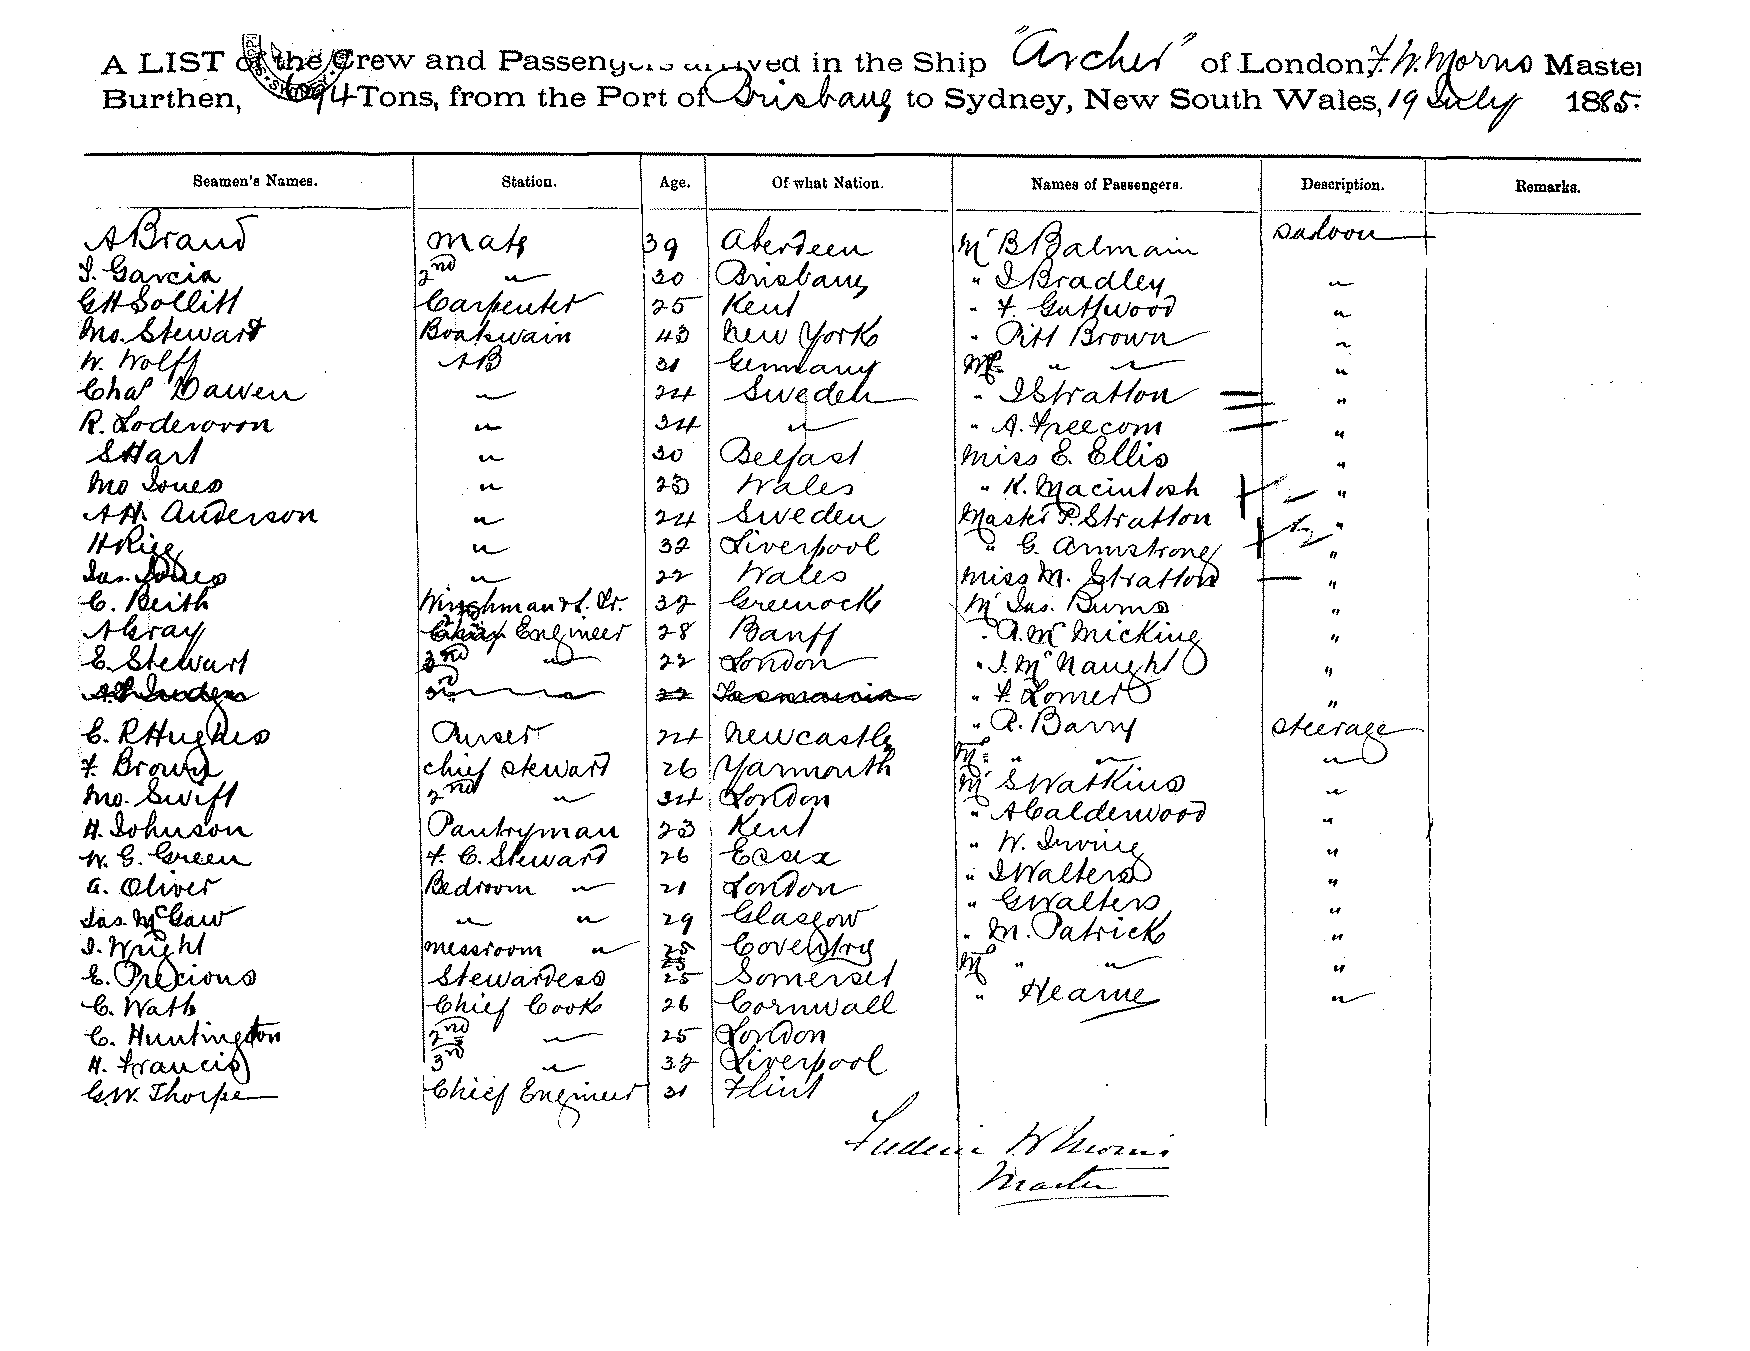 A LIST of the Crew and Passengers arrived in the Ship "Archer" of London, F. W. Morris Master
Burthen, 694 Tons, from the Port of Brisbane to Sydney, New South Wales, 19 July 1885.
Seamen's Names. Station. Age. Of what Nation. Names of Passengers. Description. Remarks.
A Brand Mate 39 Aberdeen Mr B Balmain Saloon
J. Garcia 2nd " 30 Brisbane " J Bradley "
G H Sollitt Carpenter 25 Kent " F. "
Mo. Stewart Boatswain 43 New York " Pitt Brown "
W. Wolff AB 31 Germany Mrs " " "
Chas Dawen " 24 Sweden " J Stratton "
R. " 34 " " A. Freecom "
S Hart " 30 Belfast Miss E. Ellis "
Mo Jones " 23 Wales " K. Macintosh "
A H. Anderson " 24 Sweden Master P. Stratton "
H " 32 Liverpool " G. Armstrong "
Jas. Jones " 22 Wales Miss M. Stratton "
C. Beith 32 Greenock Mr Jas. Burns "
A Gray Engineer 28 Banff " A. McMicking "
E. Stewart " 22 London " J. McNaught "
3rd " 22 Tasmania " F. Lomer "
C. R Hughes Purser 24 Newcastle " R. Barry Steerage
F. Brown Chief Steward 26 Yarmouth Mrs " " "
Mo. Swift 2nd " 34 London Mr S Watkins "
H. Johnson Pantryman 23 Kent " A Calderwood "
W. G. Green F. C. Steward 26 Essex " W. Irving "
A. Oliver Bedroom " 21 London " J Walters "
Jas. McGaw " " 29 Glasgow " G Walters "
J. Wright Messroom " 25 Coventry " M. Patrick "
E. Precious Stewardess 25 Somerset Mrs " " "
C. Wath Chief Cook 26 Cornwall " Hearne "
C. Huntington 2nd " 25 London
H. Francis 3rd " 32 Liverpool
G. W. Thorpe Chief Engineer 31 Flint
Frederic W Morris
Master